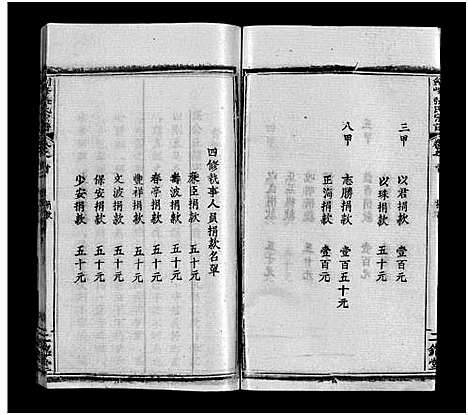 三甲
以君捐款 壹百元
以珠捐款 五十元
八甲
志勝捐款 壹百五十元
正海捐款 壹百元
四修執事人員捐款名單
燮臣捐款 五十元
壽波捐款 五十元
春亭捐款 五十元
豐祥捐款 五十元
文波捐款 五十元
保安捐款 五十元
少安捐款 五十元